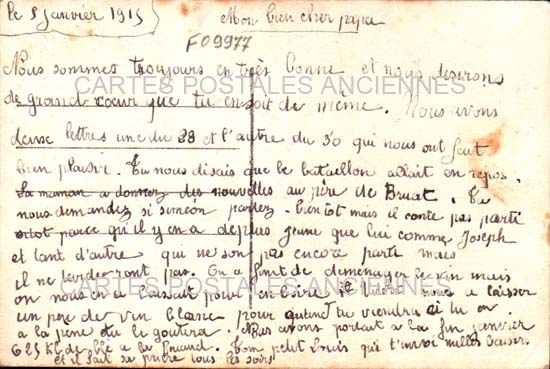 le 5 janvier 1915
Mon bien cher papa
F09977
Nous sommes toujours en très bonne et nous desirons
de grand cœur que tu en soit de même. Nous avons
deuse lettres une du 28 et l'autre du 30 qui nous ont fait
bien plaisir. Tu nous disais que le bataillon allait en repos.
La maman a donnez des nouvelles au père de Bruat. Tu
nous demandez si simeon partez. bientot mais il conte pas partir
sitot parce qu'il y en a de plus jeune que lui comme Joseph
et tant d'autre qui ne son pas encore parti mais
il ne tarderont pas. On a finit de demenager le vin mais
on nous en a laissait pour en boire il nous a laisser
un peu de vin blanc pour quand tu viendra si tu en
a la pene du le goutera. Nous avons portait a la fin janvier
625 K de blé a la Ton petit Louis qui t'envoi milles baiser
et il fait sa prière tous les soirs
CARTES POSTALES ANCIENNES
CARTES POSTALES ANCIENNES